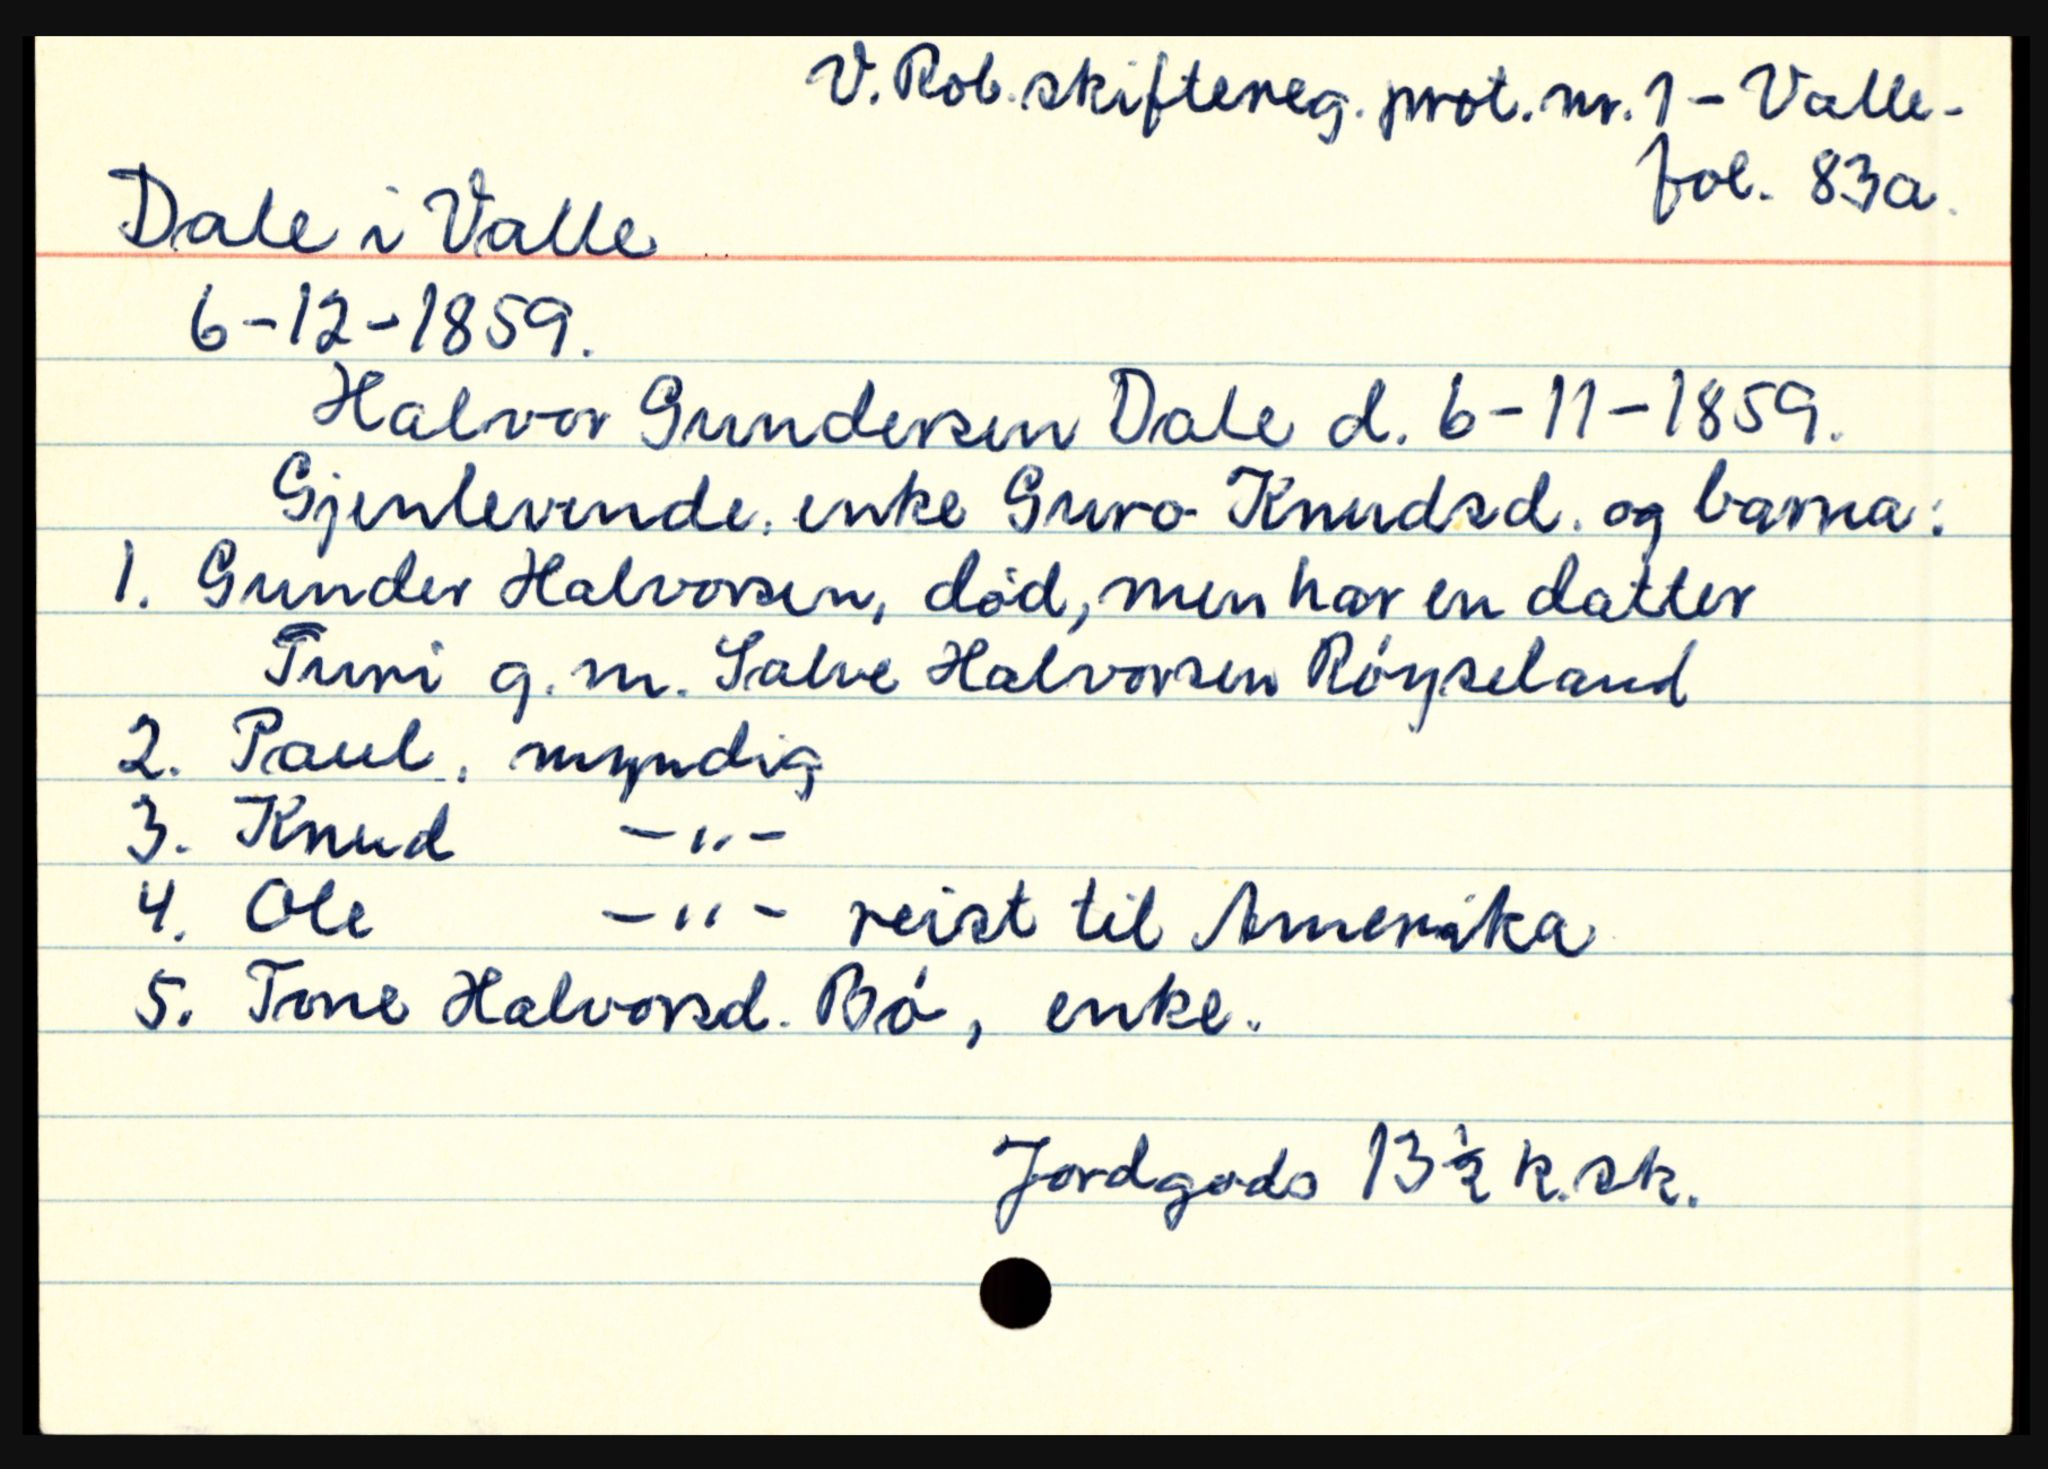 V. Rob. skiftereg. prot. nr. 1 - Valle -
fol. 83a.
Dale i Valle
6-12-1859.
Halvor Gundersen Dale d. 6-11-1859.
Gjenlevende. enke Guro Knudsd. og barna:
1. Gunder Halvorsen, död, men har en datter
Turi g.m. Salve Halvorsen Röyseland
2. Paul, myndig
3. Knud -"-
4. Ole -"- reist til Amerika
5. Tone Halvorsd. Bö, enke.
Jordgods 13 1/2 k.sk.